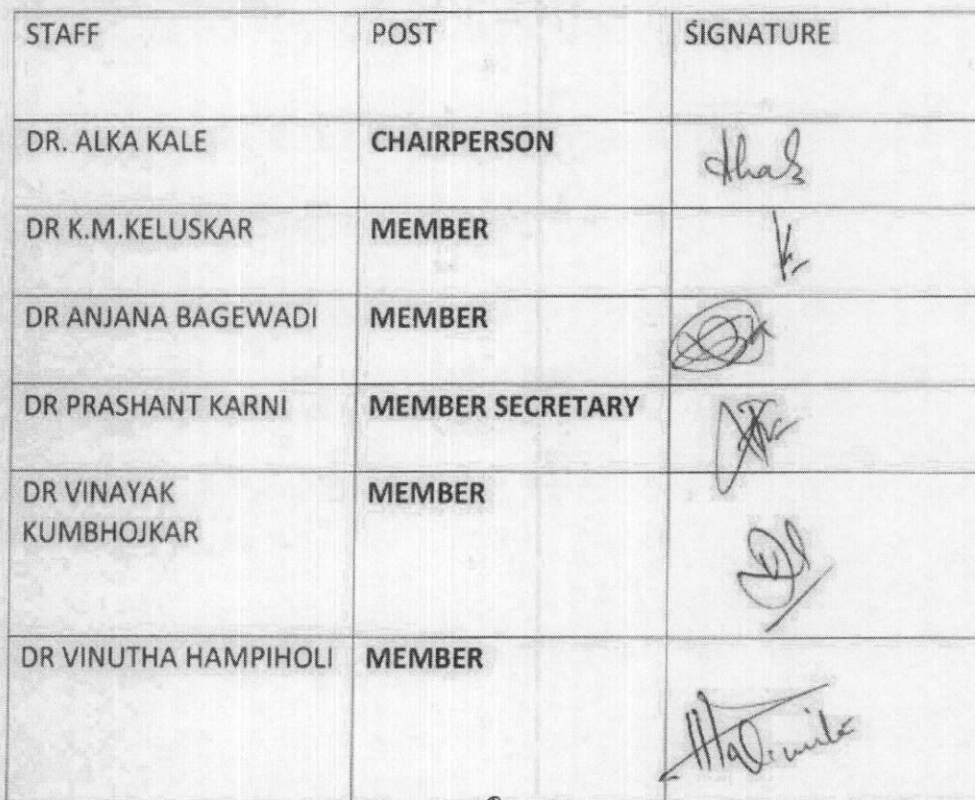 STAFF POST SIGNATURE
DR. ALKA KALE CHAIRPERSON
DR K.M.KELUSKAR MEMBER
DR ANJANA BAGEWADI MEMBER
DR PRASHANT KARNI MEMBER SECRETARY
DR VINAYAK MEMBER
KUMBHOJKAR
DR VINUTHA HAMPIHOLI MEMBER